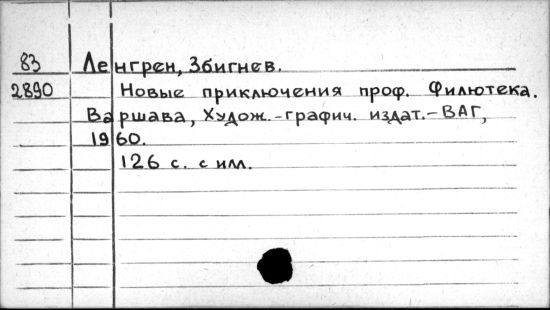 83 Ленгрен, Збигнев.
2890 Новые приключения проф. Филютека.
Варшава, Худож.-графич. издат.-ВАГ,
1960.
126 с. с илл.